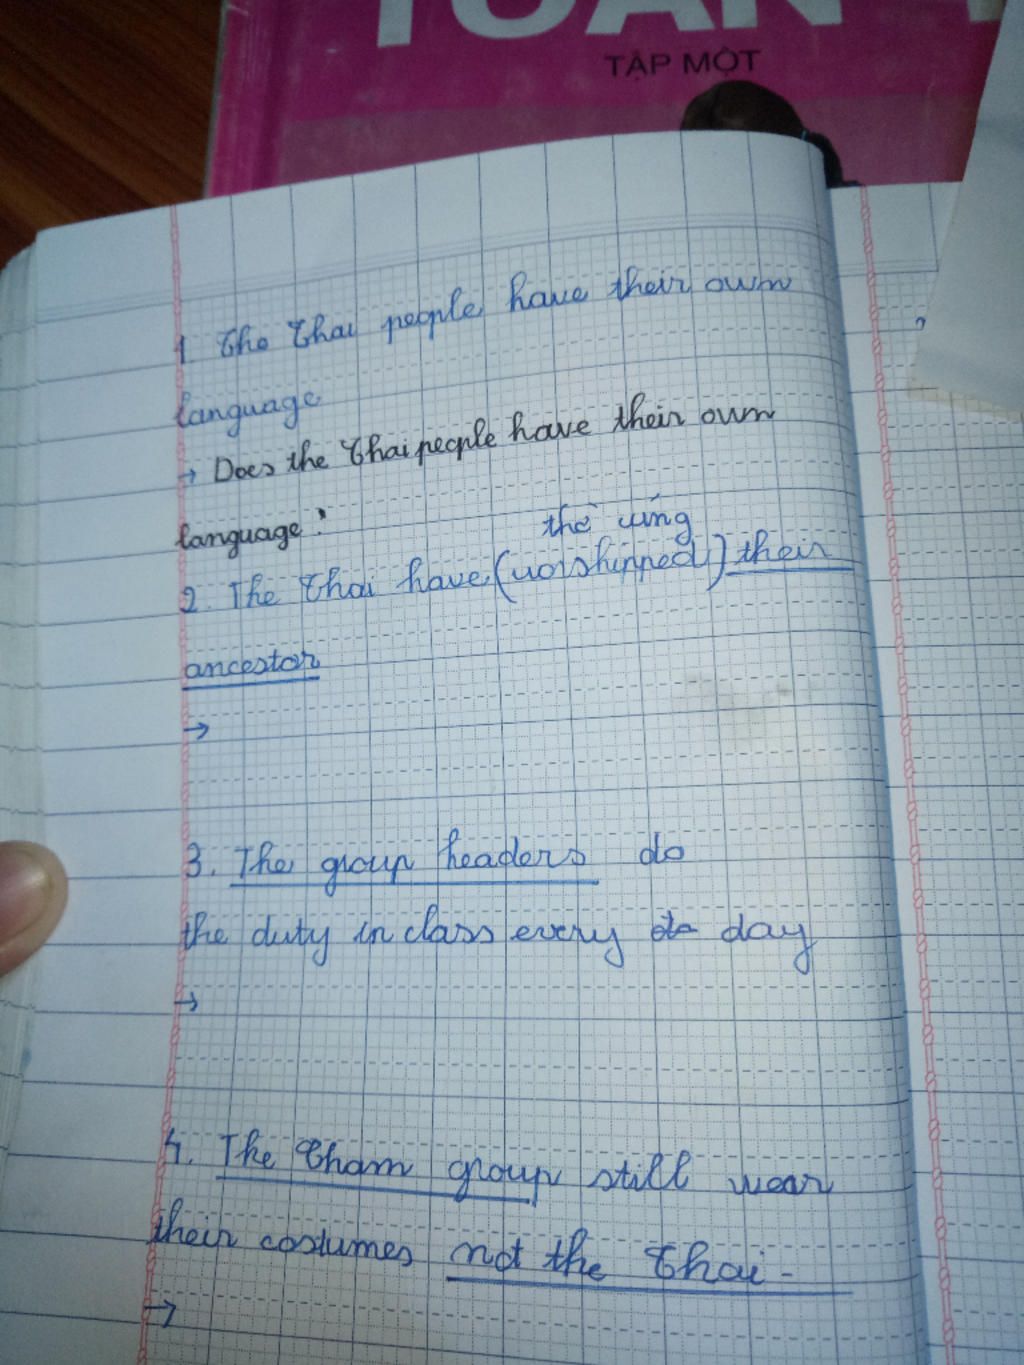 TOÁN
TẬP MỘT
1 The Thai people have their own
language
→ Does the Thai people have their own
language?
thờ cúng
2. The Thai have (worshipped) their
ancestor
→
3. The group headers do
the duty in class every day
→
4. The Cham group still wear
their costumes not the Thai -
→